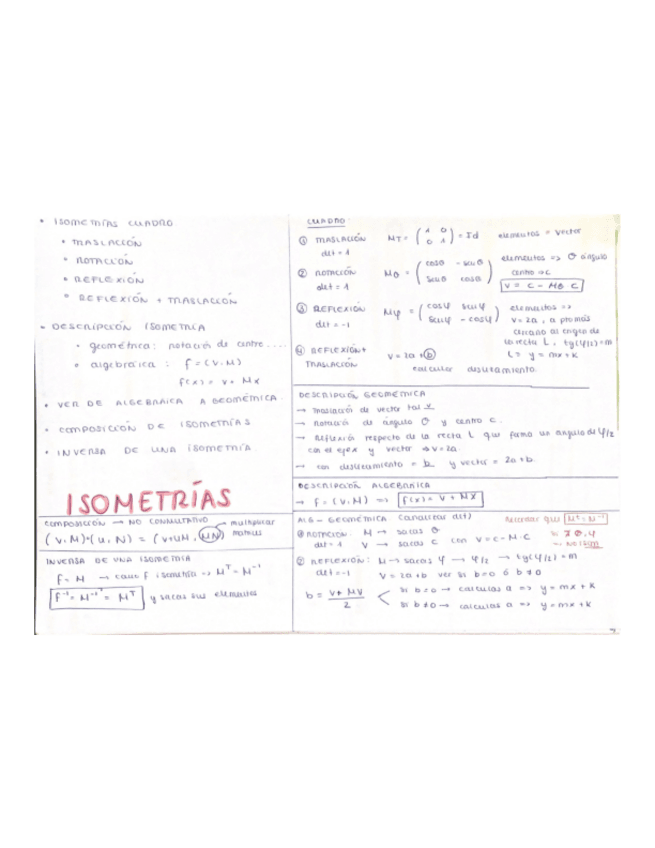 • ISOMETRÍAS CUADRO
• TRASLACIÓN
• ROTACIÓN
• REFLEXIÓN
• REFLEXIÓN + TRASLACIÓN
• DESCRIPCIÓN ISOMETRÍA
• geométrica: rotación de centro ....
• algebraica : f = (v, M)
f(x) = v + Mx
• VER DE ALGEBRAICA A GEOMÉTRICA.
• COMPOSICIÓN DE ISOMETRÍAS
• INVERSA DE UNA ISOMETRÍA
ISOMETRÍAS
COMPOSICIÓN → NO CONMUTATIVO
multiplicar matrices
(v, M)·(u, N) = (v+uM, MN)
INVERSA DE UNA ISOMETRÍA
f = M → como f isometría => Mᵀ = M⁻¹
f⁻¹ = M⁻¹ = Mᵀ y sacas sus elementos
CUADRO
① TRASLACIÓN MT = ( 1 0 / 0 1 ) = Id elementos = vector
det = 1
② ROTACIÓN Mθ = ( cosθ -senθ / senθ cosθ ) elementos => θ ángulo
det = 1 centro => c
v = c - Mθ c
③ REFLEXIÓN Mφ = ( cosφ senφ / senφ -cosφ ) elementos =>
det = -1 v = 2a, a pto más
cercano al origen de
la recta L, tg(φ/2) = m
L = y = mx + k
④ REFLEXIÓN + TRASLACIÓN v = 2a + b
calcular deslizamiento.
DESCRIPCIÓN GEOMÉTRICA
→ traslación de vector tal v
→ rotación de ángulo θ y centro c.
→ reflexión respecto de la recta L que forma un ángulo de φ/2
con el eje x y vector => v = 2a.
→ con deslizamiento = b y vector = 2a + b.
DESCRIPCIÓN ALGEBRAICA
→ f = (v, M) => f(x) = v + Mx
ALG - GEOMÉTRICA (analizar det)
Recordar que Mᵗ = M⁻¹
① ROTACIÓN: M → sacas θ
det = 1 v → sacas c con v = c - M·C
② REFLEXIÓN: M → sacas φ → φ/2 → tg(φ/2) = m
det = -1 v = 2a + b ver si b = 0 ó b ≠ 0
b = (v + Mv) / 2
si b = 0 → calculas a => y = mx + k
si b ≠ 0 → calculas a => y = mx + k